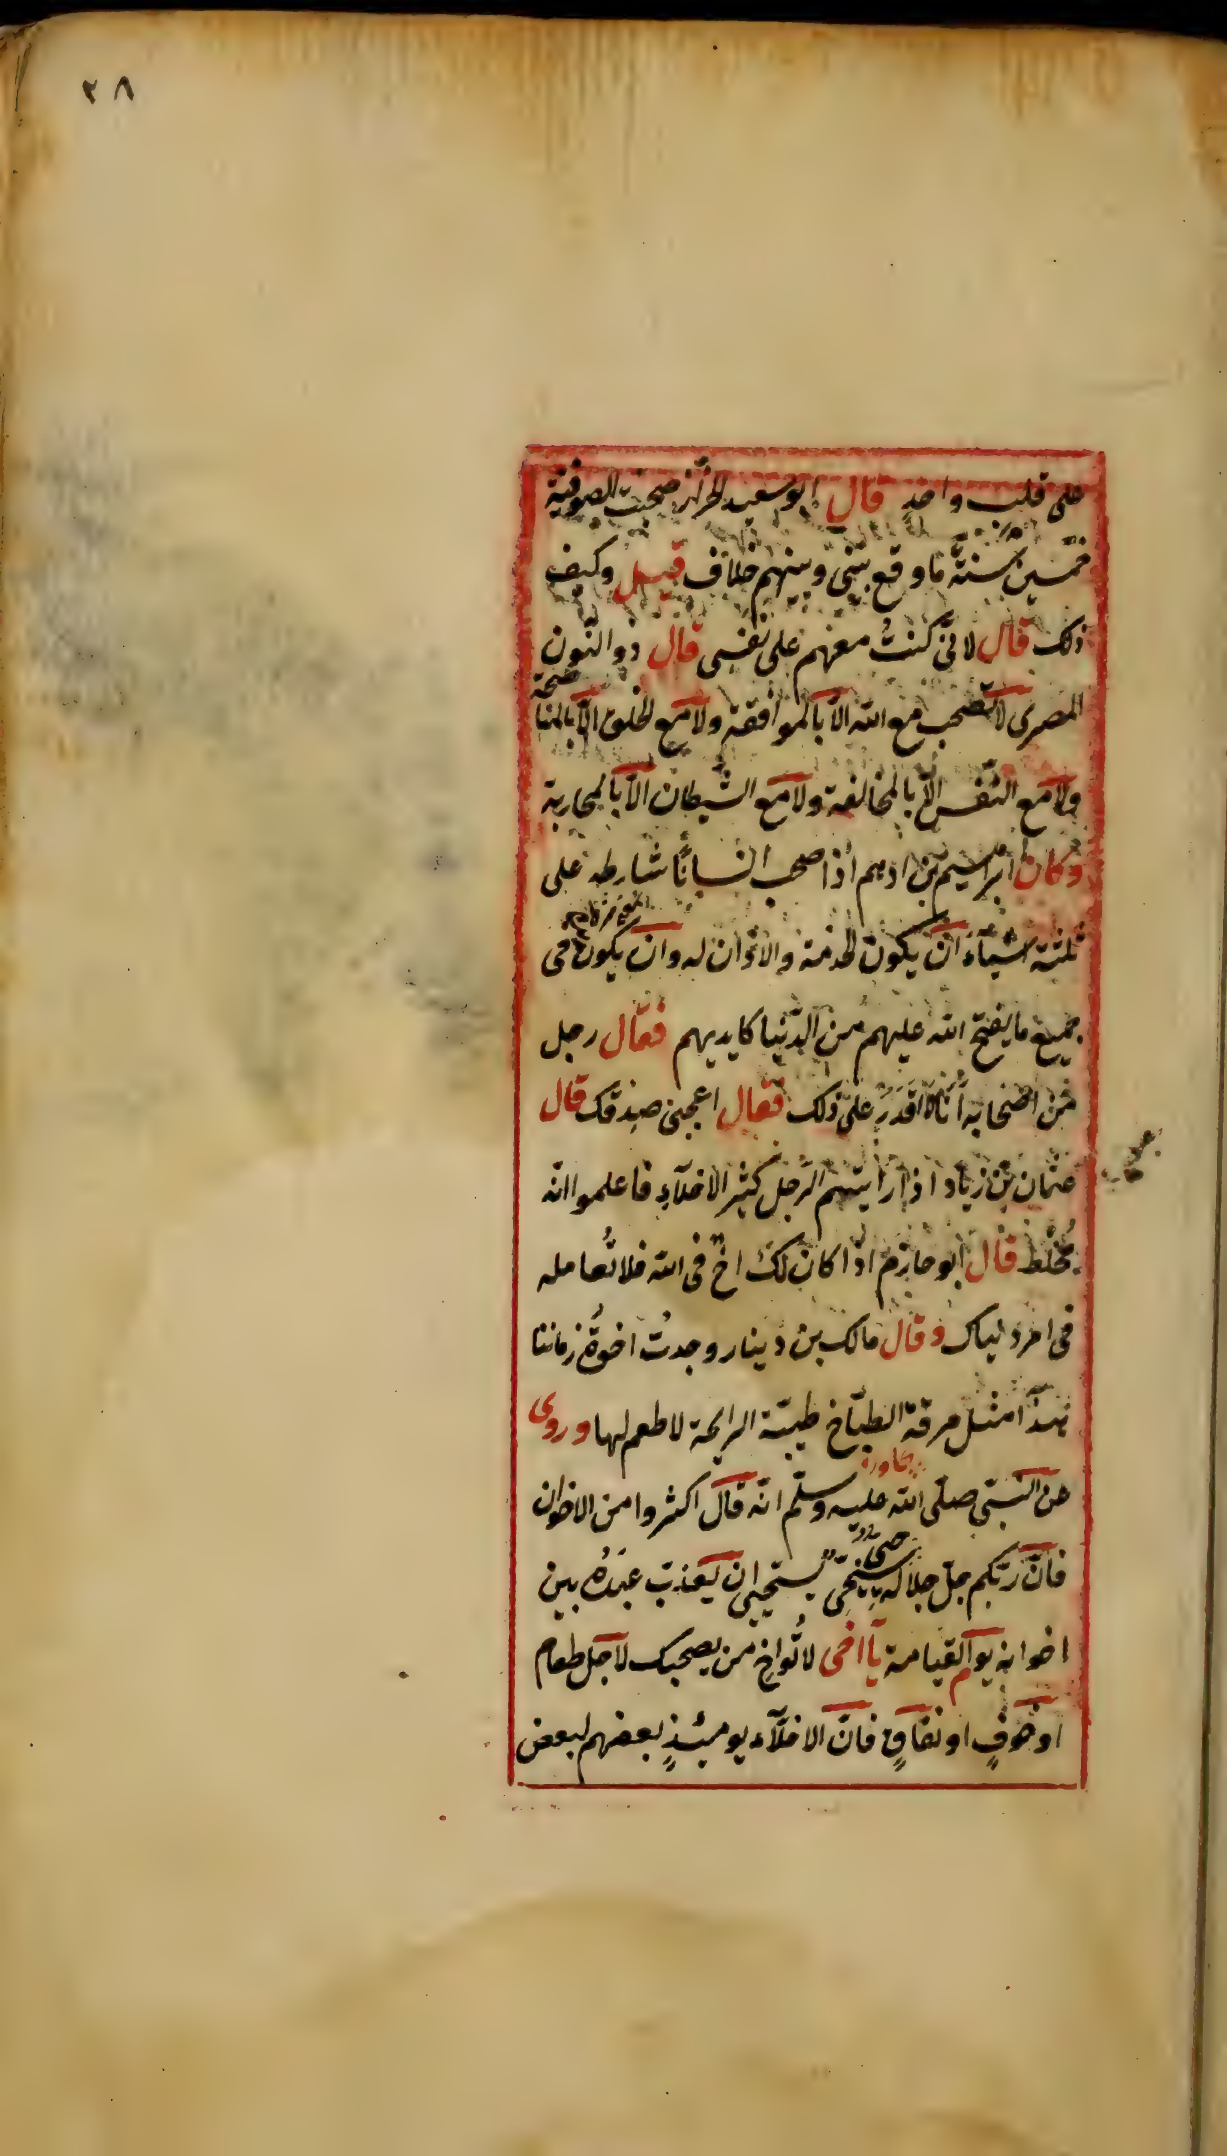 ٢٨
على قلب واحدٍ قال ابو سعيد الخرّاز صحبت الصوفيّة
خمسين سنةً ما وقع بينى وبينهم خلاف قيل وكيف
ذلك قال لانّى كنتُ معهم على نفسى قال ذو النّون
المصرى لا تصحب مع الله الّا بالموافقة ولا مع الخلق الّا بالمناصحة
ولا مع النّفس الّا بالمخالفة ولا مع الشّيطان الّا بالمحاربة
وكان ابراهيم بن ادهم اذا صحب انسانًا شارطه على
ثلثة اشياء ان يكون الخدمة والاذان له وان يكون يده فى
جميع ما يفتح الله عليهم من الدّنيا كايديهم فقال رجل
من اصحابه اَنَا لَا اَقْدَرُ على ذلك فقال اعجبنى صدقك قال
عثمان بن زياد اذا رايتم الرّجل كثير الاخلّاء فاعلموا انّه
مُخلّط قال ابو حازم اذا كان لك اخٌ فى الله فلا تُعامله
فى امر دنياك وقال مالك بن دينار وجدتُ اخوّة زماننا
هذا مثل مرقة الطبّاخ طيّبة الرايحة لا طعم لها وروى
عن النّبىّ صلّى الله عليه وسلّم انّه قال اكثروا من الاخوان
فانّ ربّكم جلّ جلاله حيىّ يستحيى ان يعذّب عبدَهُ بين
اخوانه يوم القيامة يا اخى لا تُواخ من يصحبك لاجل طعام
او خوفٍ او نفاقٍ فانّ الاخلّاء يومئذٍ بعضهم لبعض